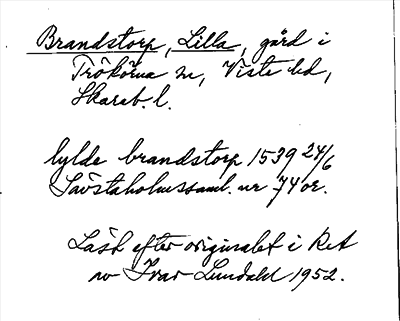 Brandstorp, Lilla, gård i
Trökörna sn, Viste hd,
Skarab. l.
lylde brandstorp 1539 24/6
Sävstaholmssaml. nr 74 or.
Läst efter originalet i RA
av Ivar Lundahl 1952.